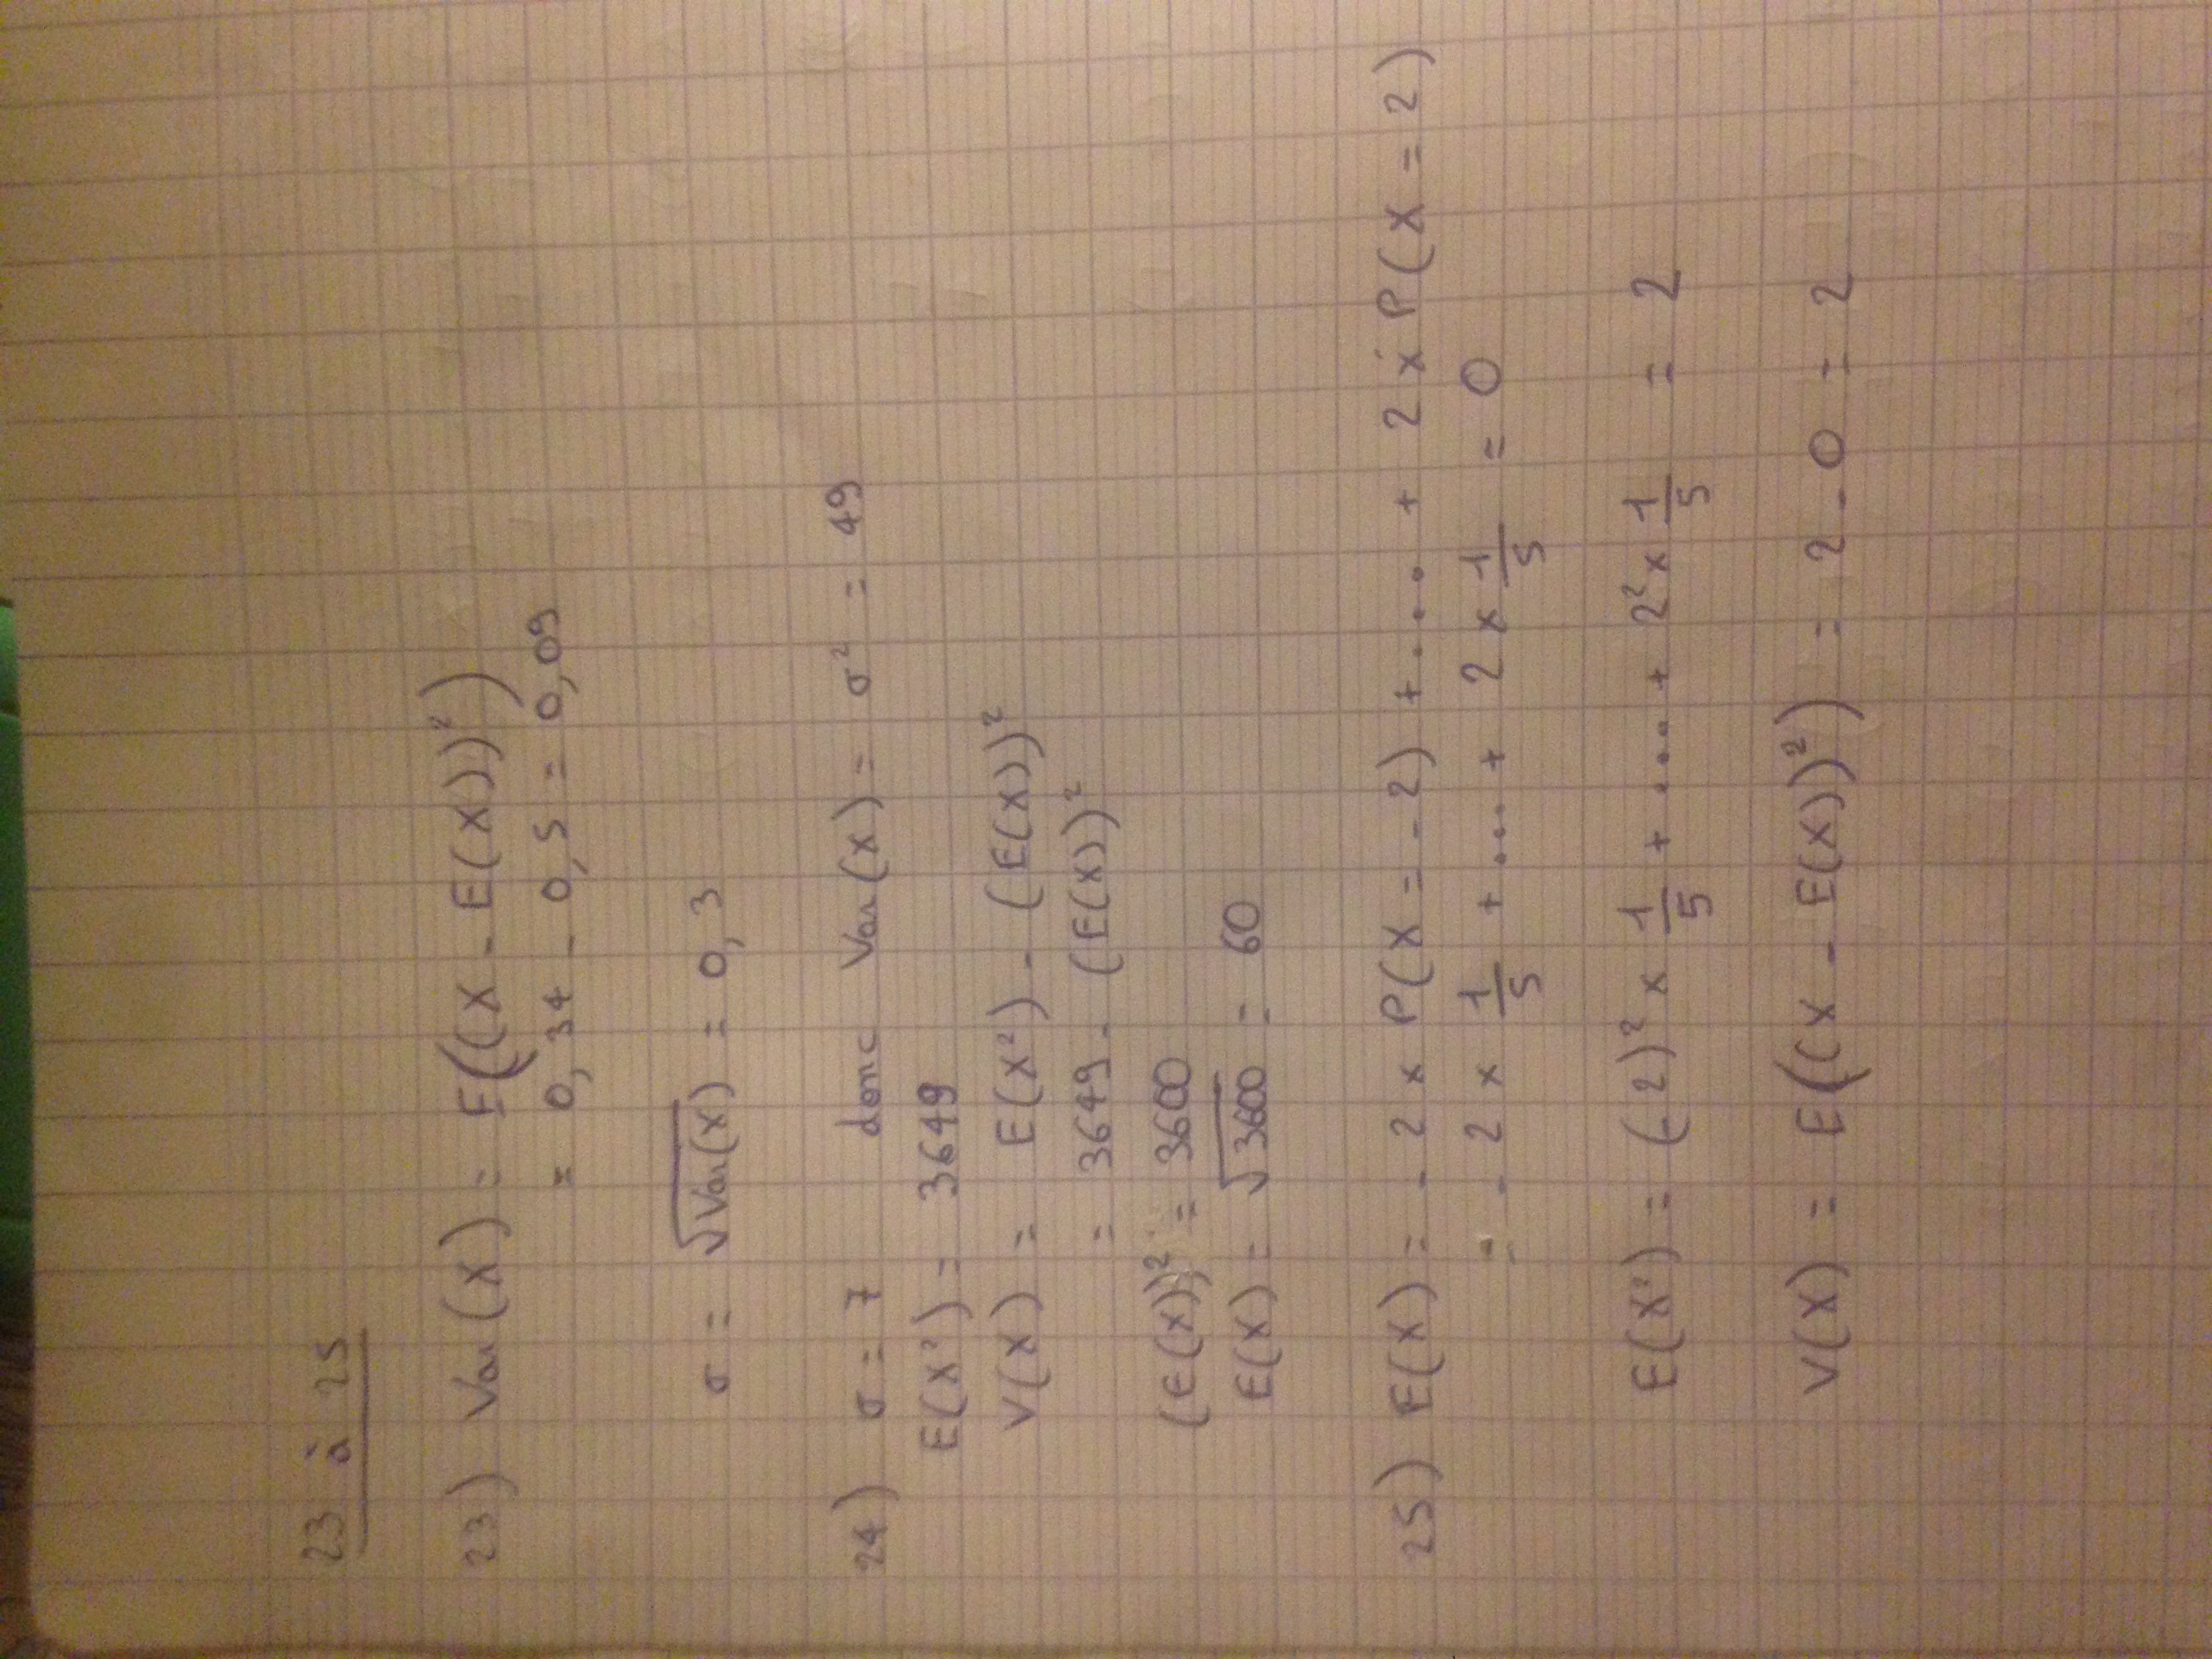 23 à 25
23) Var(X) = E((X - E(X))²)
= 0,34 - 0,5 = 0,09
σ = √Var(X) = 0,3
24) σ = 7 donc Var(X) = σ² = 49
E(X²) = 3649
V(X) = E(X²) - (E(X))²
= 3649 - (E(X))²
(E(X))² = 3600
E(X) = √3600 = 60
25) E(X) = - 2 × P(X = - 2) + .... + 2 × P(X = 2)
= - 2 × 1/5 + ... + 2 × 1/5 = 0
E(X²) = (-2)² × 1/5 + .... + 2² × 1/5 = 2
V(X) = E((X - E(X))²) = 2 - 0 = 2